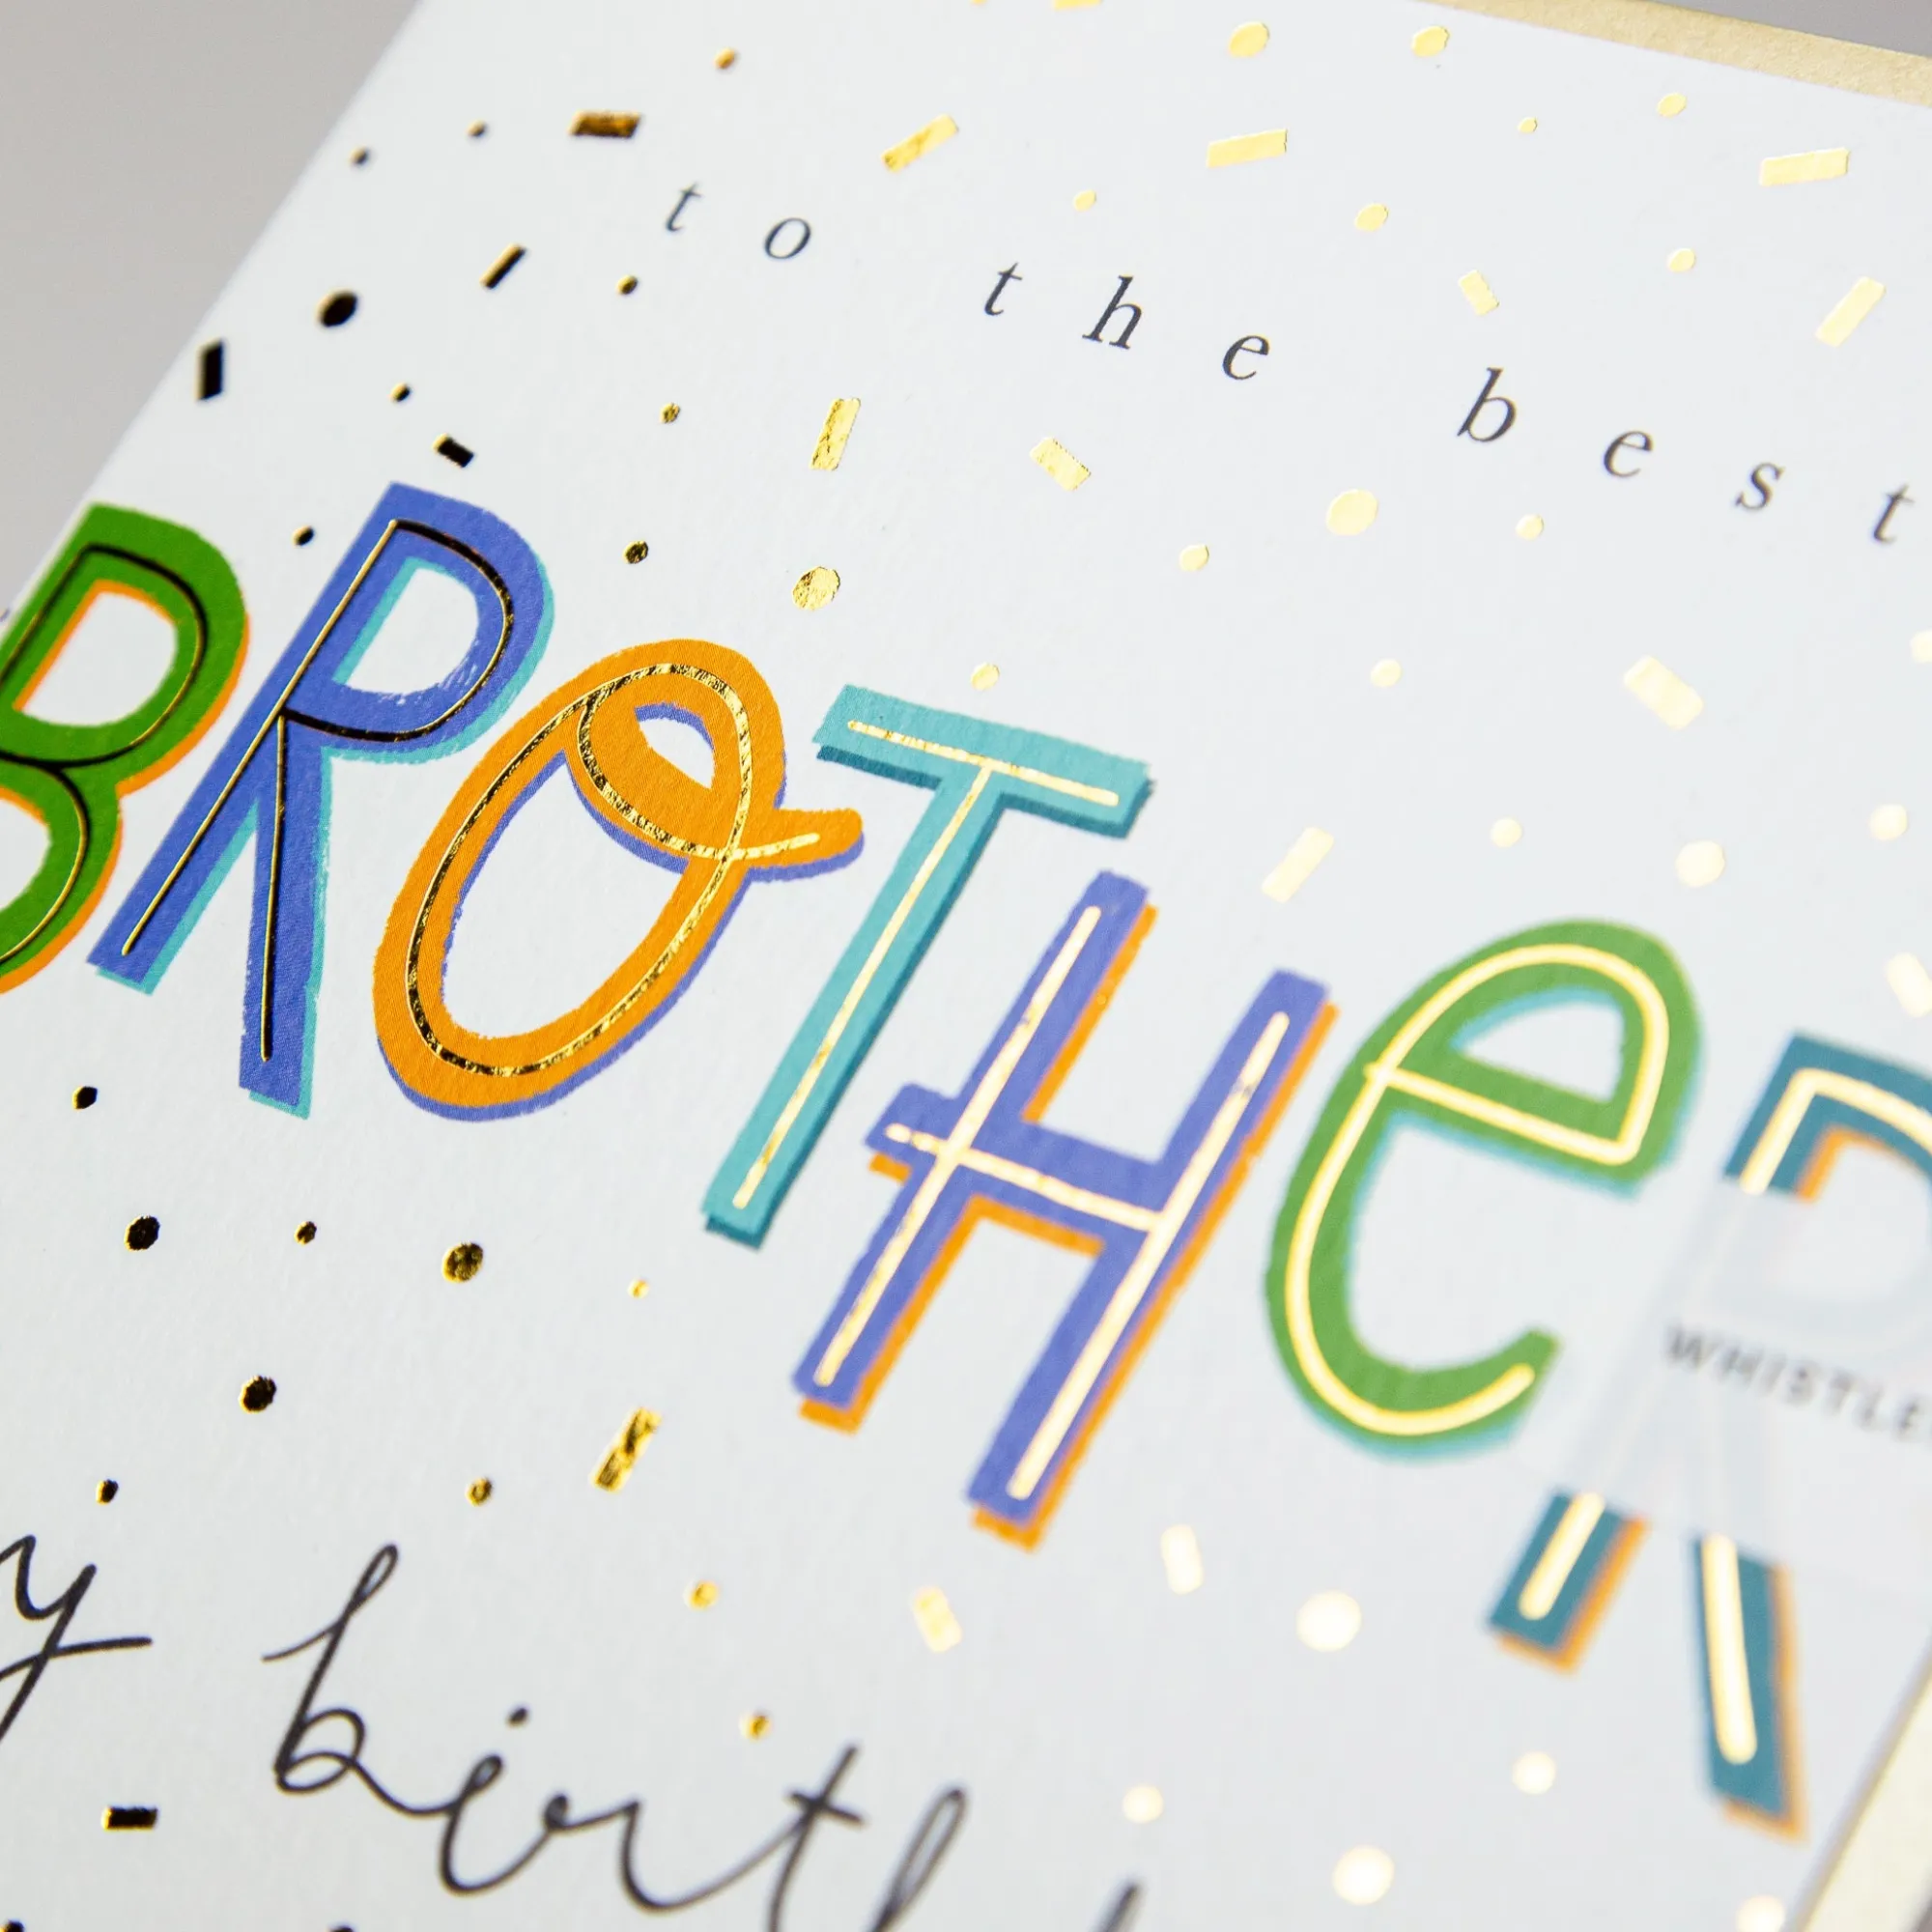 to the best
BROTHeR
WHISTLE
y birth